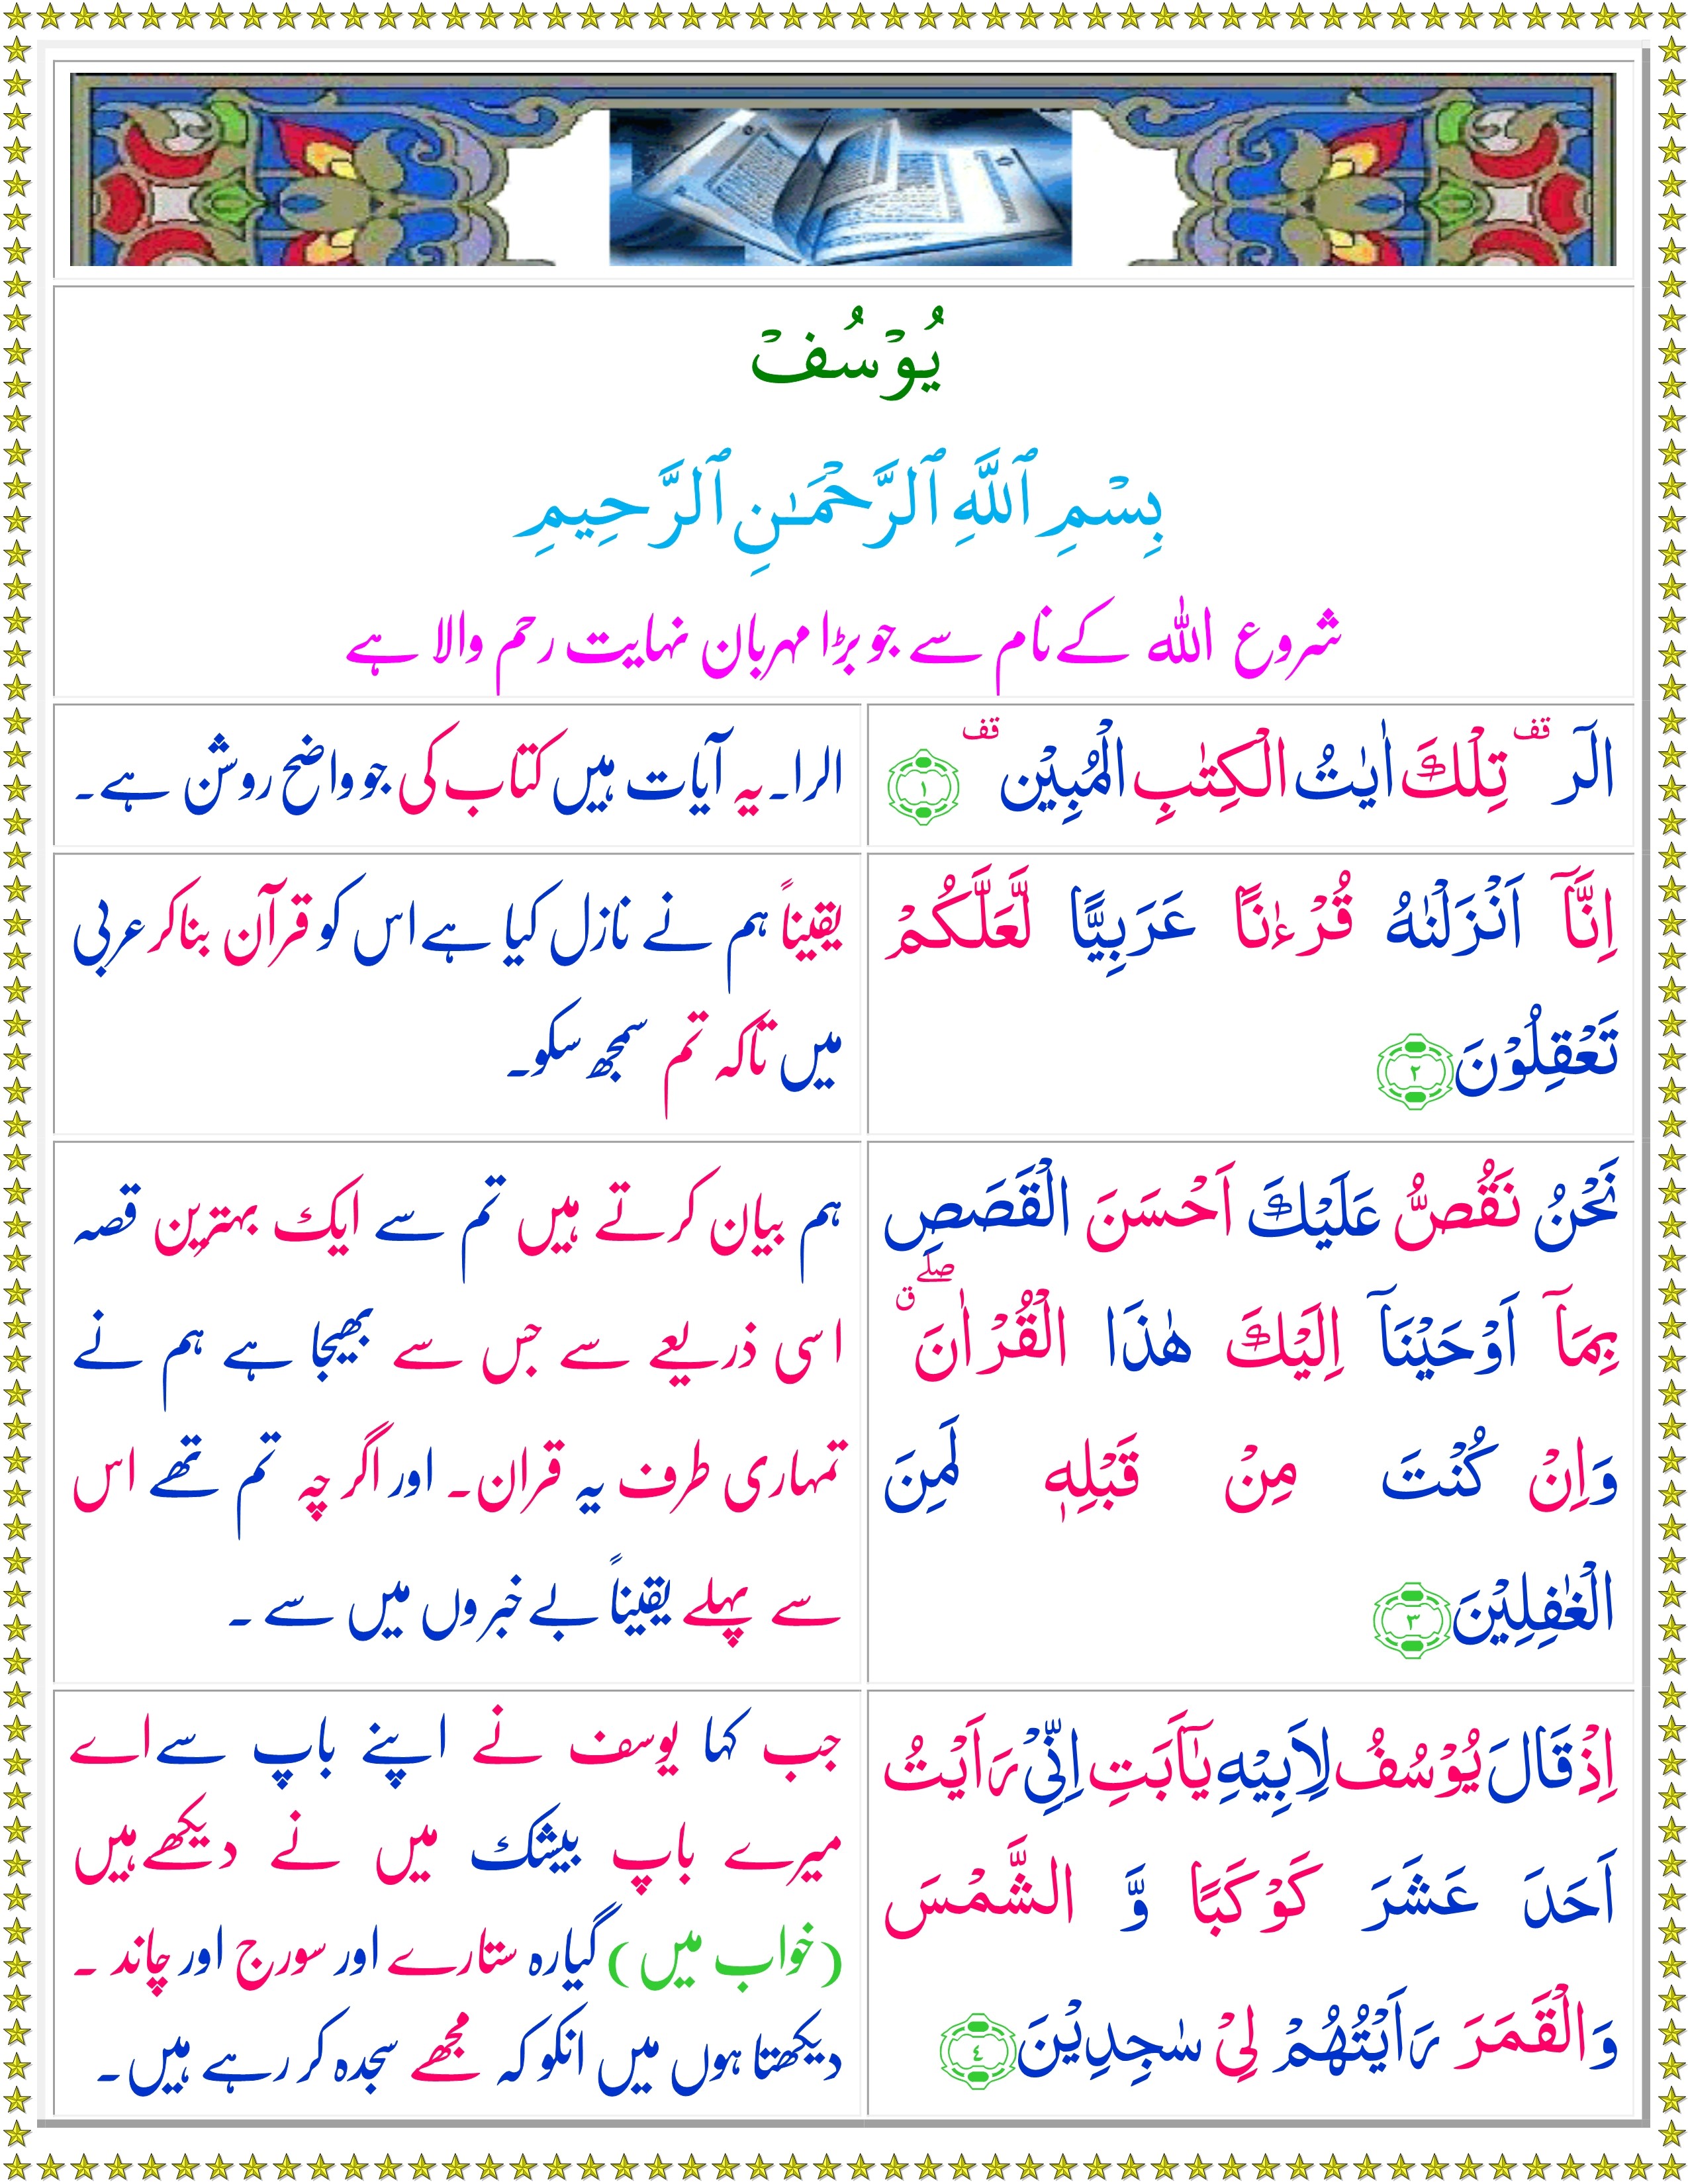 يُوۡسُفۡ
بِسۡمِ ٱللَّهِ ٱلرَّحۡمَـٰنِ ٱلرَّحِيمِ
شروع اللہ کے نام سے جو بڑا مہربان نہایت رحم والا ہے
الٓرٰ ۗقف تِلۡكَ اٰيٰتُ الۡكِتٰبِ الۡمُبِيۡن ۗقف ‏﴿۱﴾
الرا۔ یہ آیات ہیں کتاب کی جو واضح روشن ہے۔
اِنَّاۤ اَنۡزَلۡنٰهُ قُرۡءٰنًا عَرَبِيًّا لَّعَلَّكُمۡ
تَعۡقِلُوۡنَ ﴿۲﴾
یقیناً ہم نے نازل کیا ہے اس کو قرآن بنا کر عربی
میں تاکہ تم سمجھ سکو۔
نَحۡنُ نَقُصُّ عَلَيۡكَ اَحۡسَنَ الۡقَصَصِ
بِمَاۤ اَوۡحَيۡنَاۤ اِلَيۡكَ هٰذَا الۡقُرۡاٰنَ ۖ ق
وَاِنۡ كُنۡتَ مِنۡ قَبۡلِهٖ لَمِنَ
الۡغٰفِلِيۡنَ ﴿۳﴾
ہم بیان کرتے ہیں تم سے ایک بہترین قصہ
اسی ذریعے سے جس سے بھیجا ہے ہم نے
تمہاری طرف یہ قران۔ اور اگر چہ تم تھے اس
سے پہلے یقیناً بے خبروں میں سے ۔
اِذۡ قَالَ يُوۡسُفُ لِاَبِيۡهِ يٰۤاَبَتِ اِنِّىۡ رَاَيۡتُ
اَحَدَ عَشَرَ كَوۡكَبًا وَّ الشَّمۡسَ
وَالۡقَمَرَ رَاَيۡتُهُمۡ لِىۡ سٰجِدِيۡنَ ﴿۴﴾
جب کہا یوسف نے اپنے باپ سے اے
میرے باپ بیشک میں نے دیکھے ہیں
(خواب میں) گیارہ ستارے اور سورج اور چاند ۔
دیکھتا ہوں میں انکو کہ مجھے سجدہ کر رہے ہیں۔